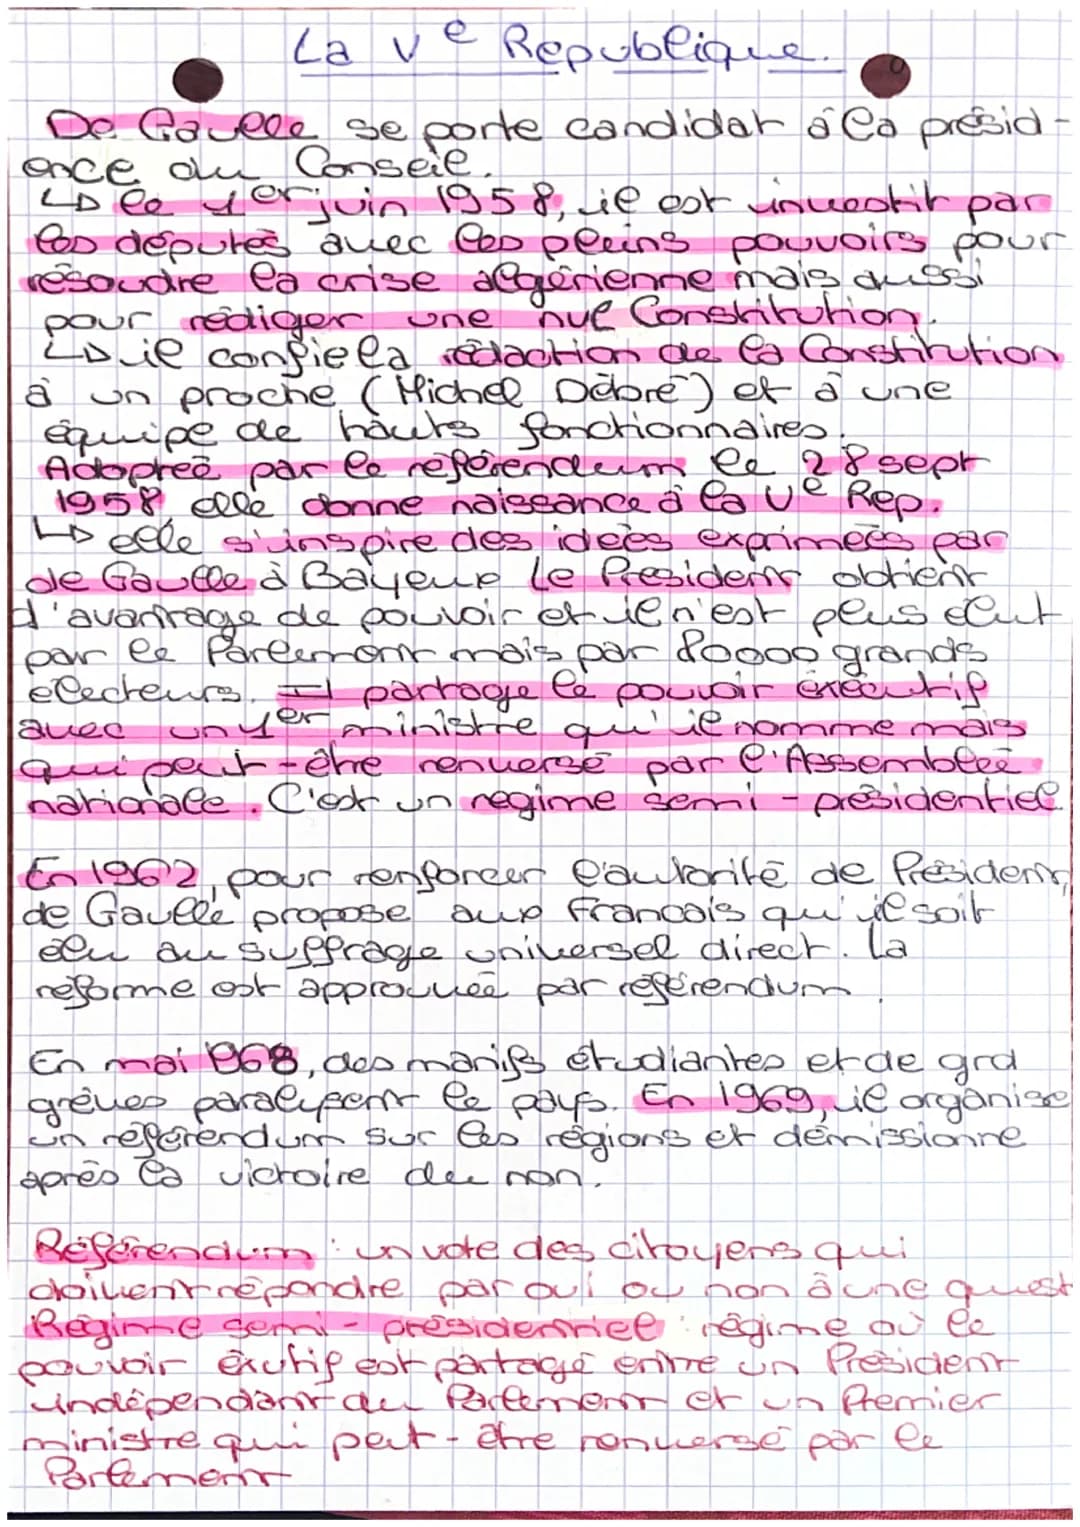 La Ve République.
De Gaulle se porte candidat à la présid-
ence du Conseil.
↳ le 1er juin 1958, il est investit par
les députés avec les pleins pouvoirs pour
résoudre la crise algérienne mais aussi
pour rédiger une nvl Constitution.
↳ il confie la rédaction de la Constitution
à un proche (Michel Debré) et à une
équipe de hauts fonctionnaires.
Adoptée par le référendum le 28 sept
1958 elle donne naissance à la Ve Rep.
↳ elle s'inspire des idées exprimées par
de Gaulle à Bayeux Le Président obtient
d'avantage de pouvoir et il n'est plus élut
par le Parlement mais par 80000 grands
électeurs. Il partage le pouvoir exécutif
avec un 1er ministre qu'il nomme mais
qui peut-être renversé par l'Assemblée
nationale. C'est un régime semi-présidentiel.
En 1962, pour renforcer l'autorité de Président,
de Gaulle propose aux Francais qu'il soit
élu au suffrage universel direct. La
réforme est approuvée par référendum.
En mai 1968, des manifs étudiantes et de grd
grèves paralysent le pays. En 1969, il organise
un référendum sur les régions et démissionne
après la victoire du non.
Référendum : un vote des citoyens qui
doivent répondre par oui ou non à une quest
Régime semi-présidentiel : régime où le
pouvoir éxutif est partagé entre un Président
indépendant du Parlement et un Premier
ministre qui peut-être renversé par le
Parlement